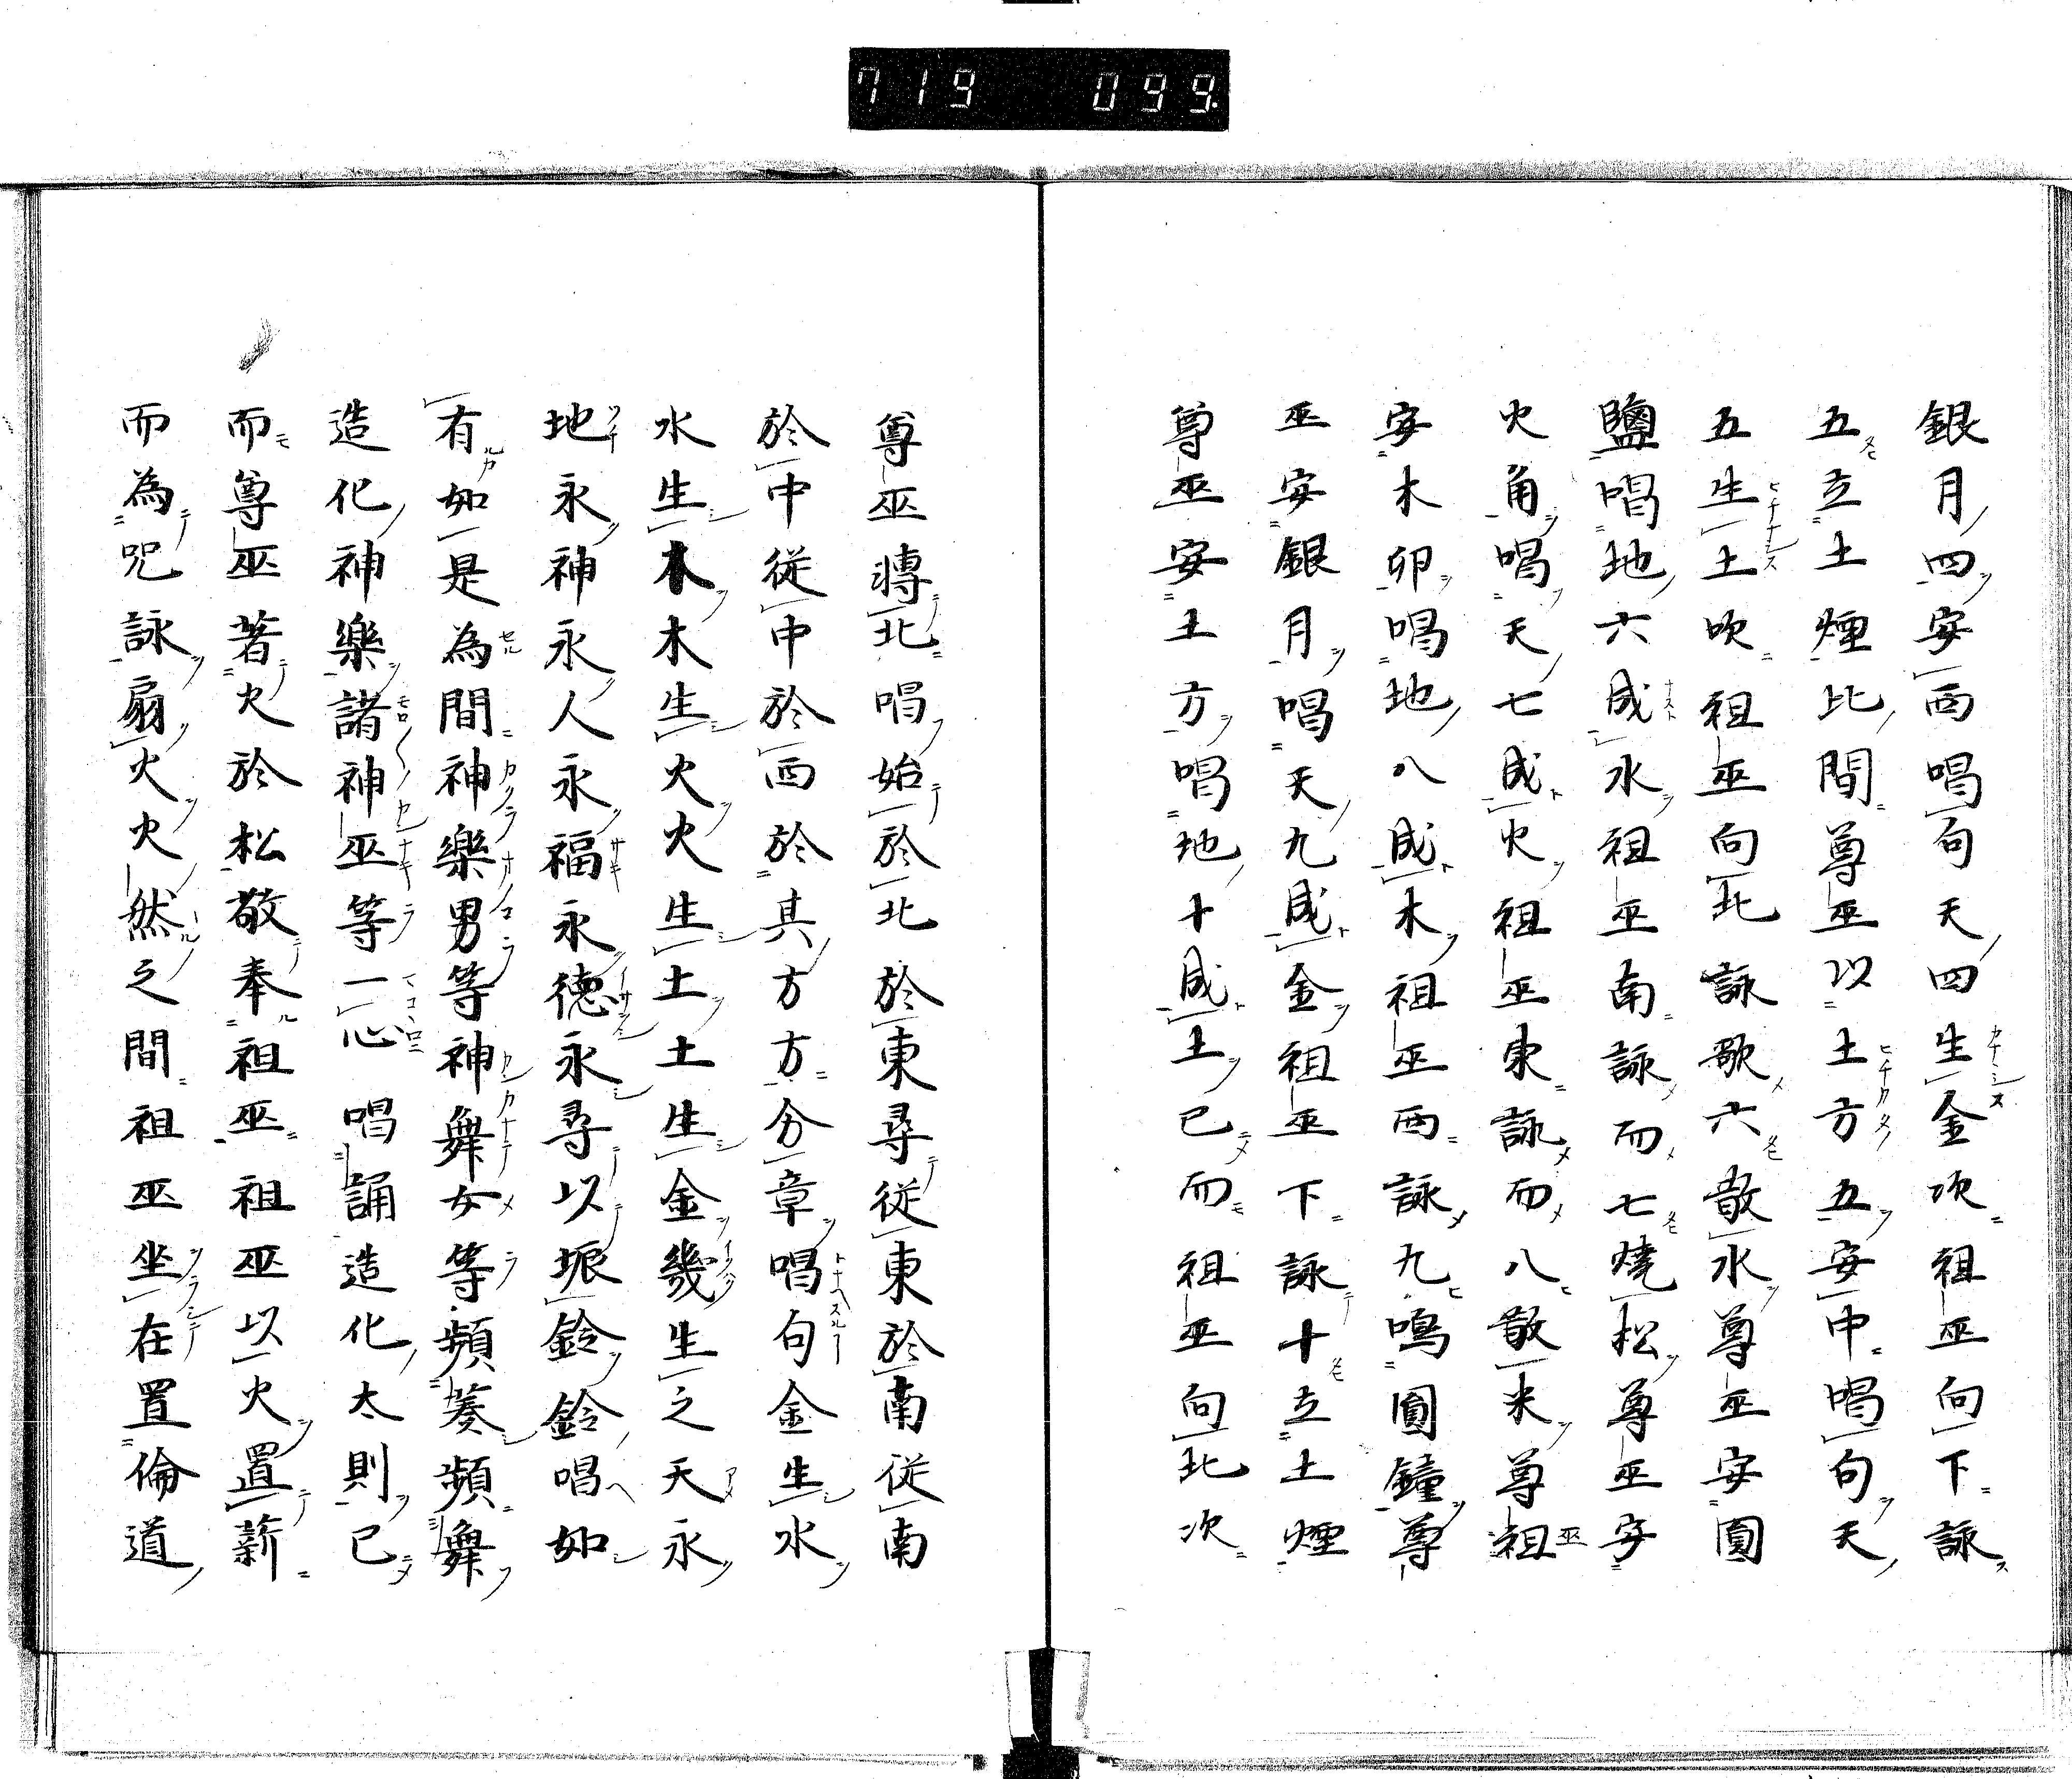 719 099.
銀月四安西唱句天四生金次祖巫向下詠
五立土煙比間尊巫以土方五安中唱句天
五生土吹祖巫向北詠歌六散水尊巫安圓
鹽唱地六成水祖巫南詠而七燒松尊巫安
火角唱天七成火祖巫東詠而八散米尊祖巫
安木卯唱地八成木祖巫西詠九鳴圓鐘尊
巫安銀月唱天九成金祖巫下詠十立土煙
尊巫安土方唱地十成土已而祖巫向北次
尊巫轉北唱始於北於東尋從東於南從南
於中從中於西於其方方分章唱句金生水
水生木木生火火生土土生金幾生之天永
地永神永人永福永德永尋以振鈴鈴唱如
有如是為間神樂男等神舞女等頻奏頻舞
造化神樂諸神巫等一心唱誦造化太則已
而尊巫著火於松敬奉祖巫祖巫以火置薪
而為咒詠扇火火然之間祖巫坐在置倫道